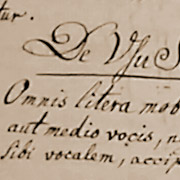 tur.
De Usu S
Omnis litera mob
aut medio vocis, n
sibi vocalem, accip